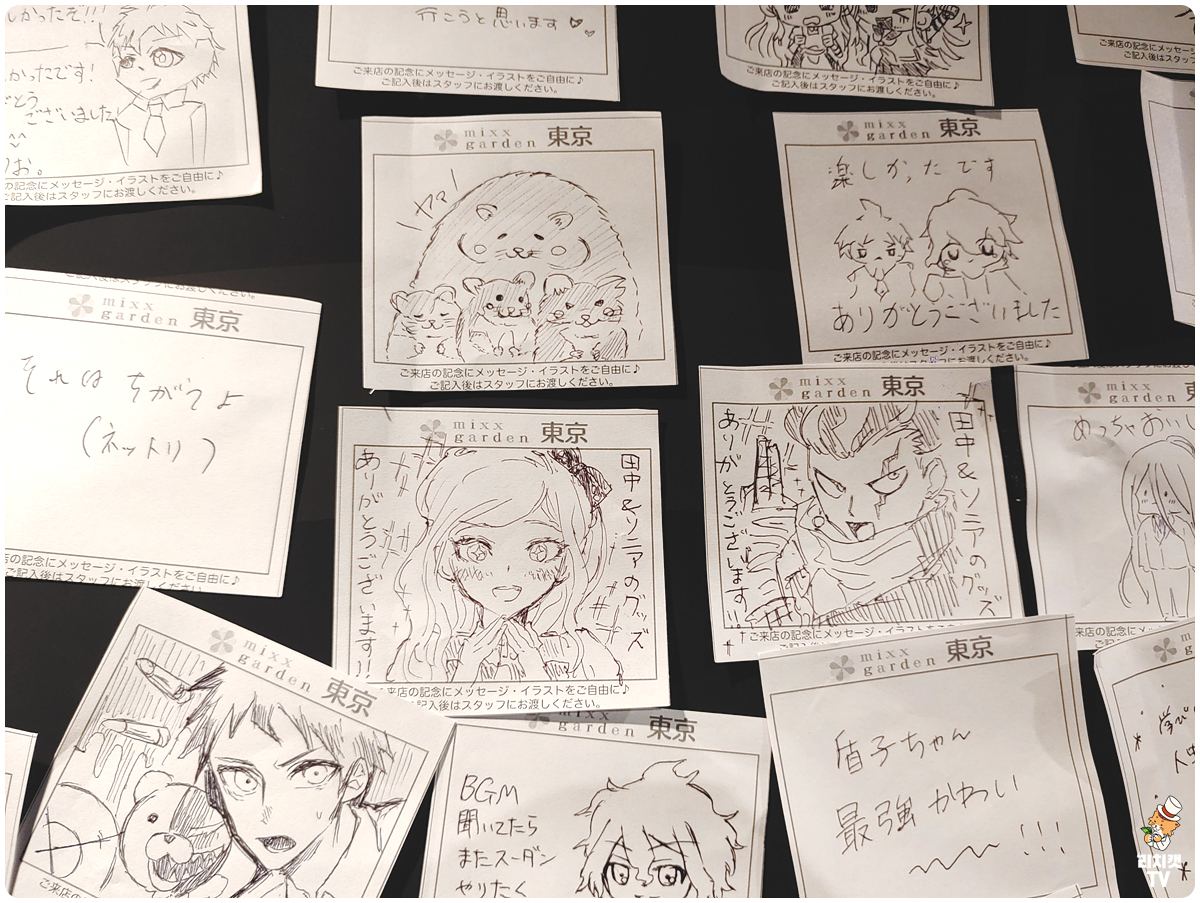 しかったぞ!!!
かったです!
とう
ございました
^^
お。
の記念にメッセージ・イラストをご自由に♪
ご記入後はスタッフにお渡しください。
行こうと思います
ご来店の記念にメッセージ・イラストをご自由に♪
ご記入後はスタッフにお渡しください。
ご来店の記念にメッセージ・イラストをご自由に♪
ご記入後はスタッフにお渡しください。
mixx
garden 東京
ヤマ
ご来店の記念にメッセージ・イラストをご自由に♪
ご記入後はスタッフにお渡しください。
mixx
garden 東京
楽しかったです
ありがとうございました
ご来店の記念にメッセージ・イラストをご自由に♪
mixx
garden 東京
それは ちがうよ
(ネットリ)
店の記念にメッセージ・イラストをご自由に♪
ご記入後はスタッフにお渡しください
mixx
garden 東京
田中&ソニアのグッズ
ありがとうございます!!
来店の記念にメッセージ・イラストをご自由に♪
記入後はスタッフにお渡しください。
mixx
garden 東京
田中&ソニアのグッズ
ありがとうございます!!
ご来店の記念にメッセージ・イラストをご自由に
mixx
garden 東
めっちゃおいし
mixx
garden 東京
ご来店の
mixx
garden 東京
BGM
聞いてたら
またスーダン
やりたく
mixx
garden 東京
盾子ちゃん
最強かわいい
!!!
리치캣
TV